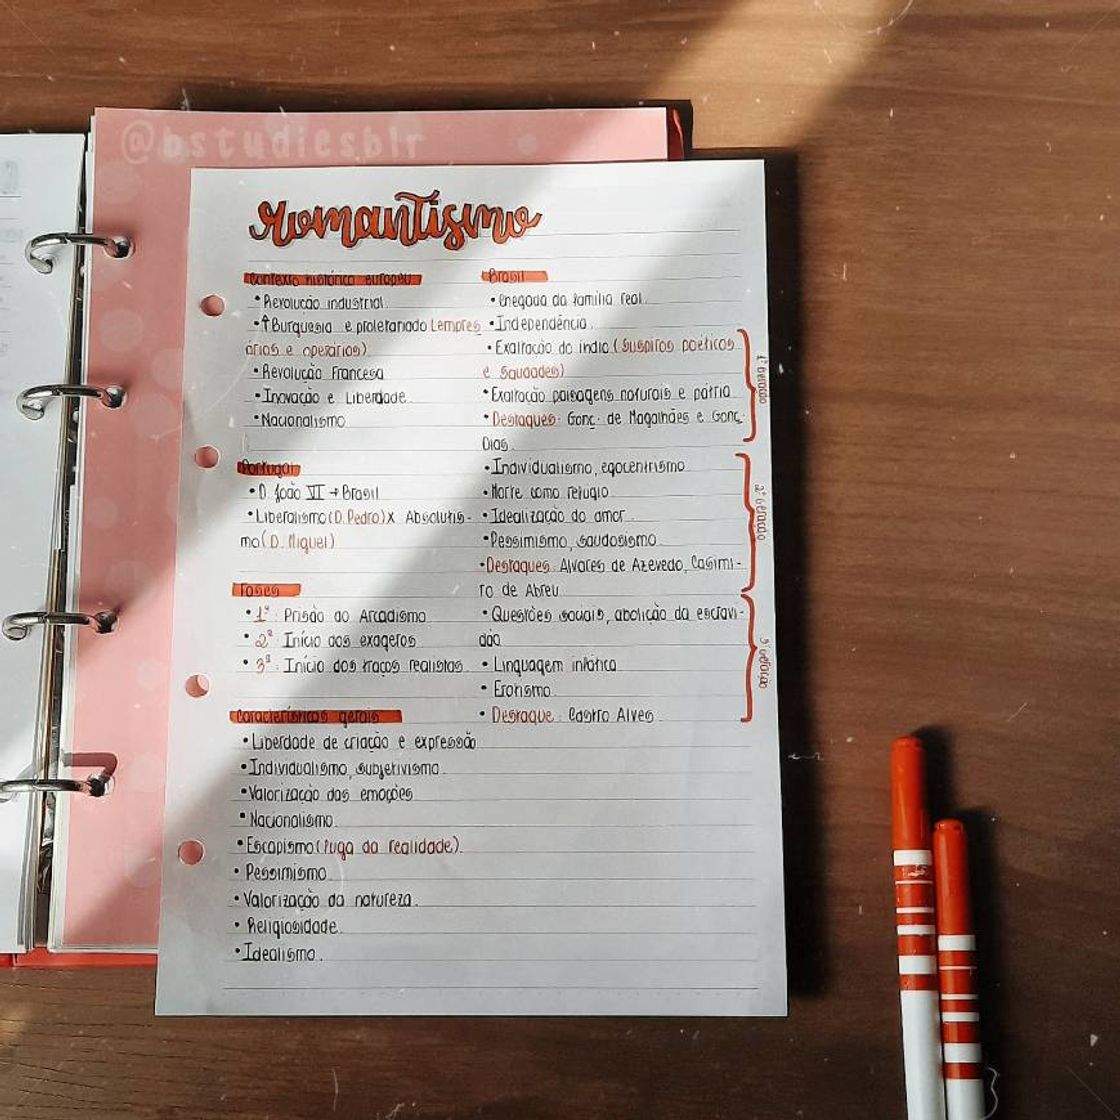 @bstudiesblr
Romantismo
Contexto histórico europeu
• Revolução industrial.
• ↑ Burguesia e proletariado (empres
ários e operários)
• Revolução Francesa
• Inovação e Liberdade.
• Nacionalismo.
Portugal
• D. João VI → Brasil
• Liberalismo (D. Pedro) X Absolutis-
mo (D. Miguel)
Fases
• 1ª: Prisão ao Arcadismo
• 2ª: Início dos exageros
• 3ª: Início dos traços realistas
Características gerais
• Liberdade de criação e expressão
• Individualismo, subjetivismo.
• Valorização das emoções
• Nacionalismo.
• Escapismo (fuga da realidade).
• Pessimismo.
• Valorização da natureza.
• Religiosidade.
• Idealismo.
Brasil
• Chegada da família real.
• Independência.
• Exaltação do índio (Suspiros poéticos
e Saudades)
• Exaltação paisagens naturais e pátria
• Destaques: Gonç. de Magalhães e Gonç.
Dias.
1ª Geração
• Individualismo, egocentrismo
• Morte como refúgio.
• Idealização do amor.
• Pessimismo, saudosismo.
• Destaques: Álvares de Azevedo, Casimi-
ro de Abreu
2ª Geração
• Questões sociais, abolição da escravi-
dão
• Linguagem
• Erotismo.
• Destaque: Castro Alves.
3ª Geração